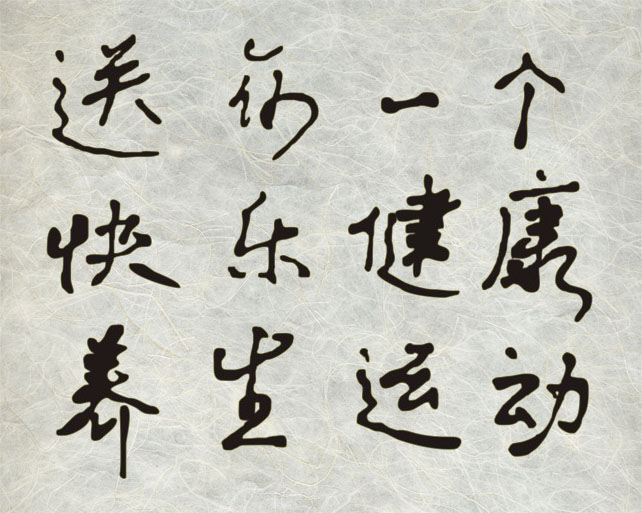 送你一个
快乐健康
养生运动